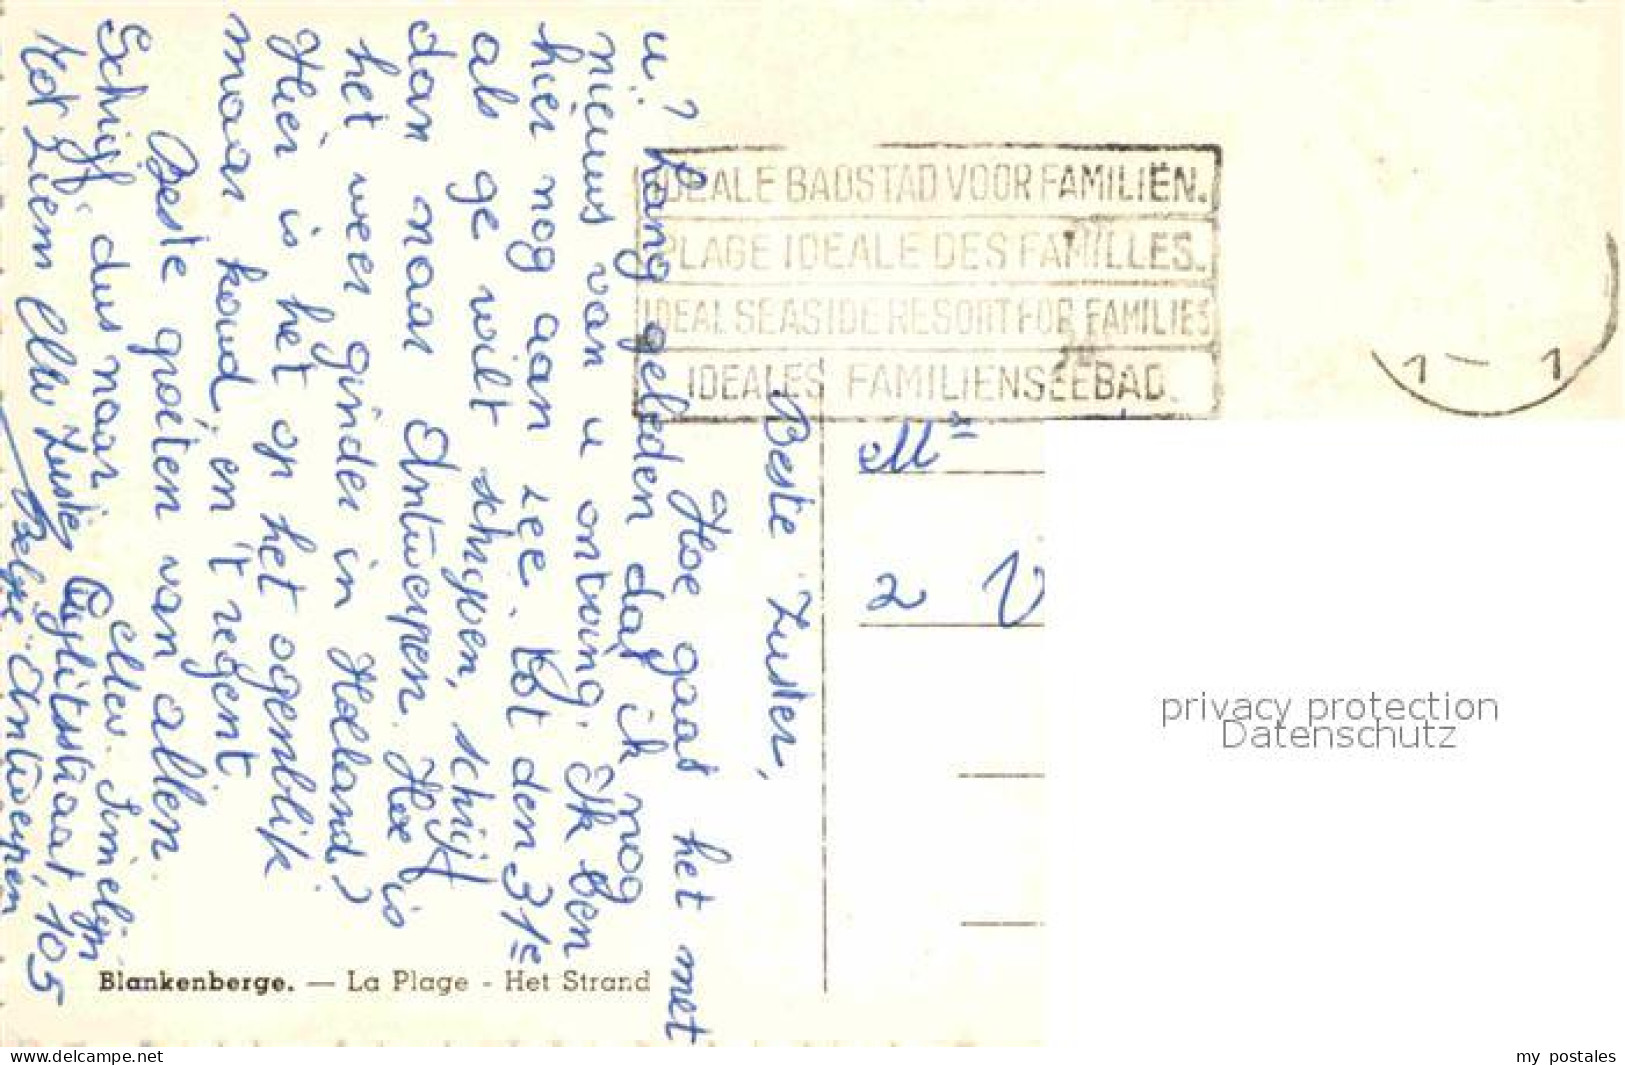 Beste Zuster,
Hoe gaat het met
u? 't is lang geleden dat ik nog
nieuws van u ontving. Ik ben
hier nog aan zee. Tot den 31e
als ge wilt schrijven, schrijf
dan naar Antwerpen. Hoe is
het weer ginder in Holland?
Hier is het op het ogenblik
maar koud, en 't regent.
Beste groeten van allen
Schrijf dus naar, Mev.
Tot Ziens Uw Zuster 105
Belgie - Antwerpen
IDEALE BADSTAD VOOR FAMILIËN.
PLAGE IDEALE DES FAMILLES.
IDEAL SEASIDE RESORT FOR FAMILIES
IDEALES FAMILIENSEEBAD.
1 - 1
Mr
2 V
privacy protection
Datenschutz
Blankenberge. — La Plage - Het Strand
www.delcampe.net
my_postales